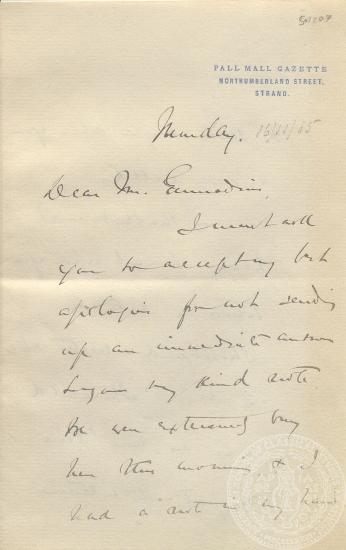 PALL MALL GAZETTE
NORTHUMBERLAND STREET,
STRAND.
Monday. 16/11/85
Dear Mr. Gennadius,
I must ask
you to accept my best
apologies for not sending
up an immediate answer
to your very kind note.
We were extremely busy
here this morning & I
had a note in my hand